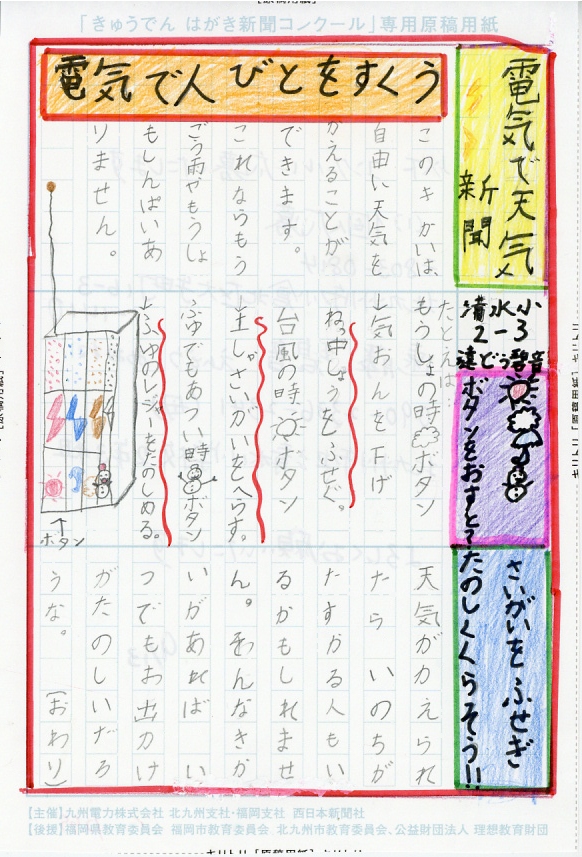 「きゅうでん はがき新聞コンクール」専用原稿用紙
電気で天気
新聞
清水小
2-3
遠どう碧音
ボタンをおすと?
さいがいをふせぎ
たのしくくらそう!!
電気で人びとをすくう
このキカいは、
自由に天気を
かえることが
できます。
これならもう
ごう雨やもうしょ
もしんぱいあ
りません。
たとえば
もうしょの時ボタン
↓気おんを下げ
ねっ中しょうをふせぐ。
台風の時ボタン
↓土しゃさいがいをへらす。
ふゆでもあつい時ボタン
↓ふゆのレジャーをたのしめる。
↑
ボタン
天気がかえられ
たら いのちが
たすかる人もい
るかもしれませ
ん。そんなきか
いがあれば い
つでもお出かけ
がたのしいだろ
うな。 (おわり)
【主催】九州電力株式会社 北九州支社・福岡支社 西日本新聞社
【後援】福岡県教育委員会 福岡市教育委員会 北九州市教育委員会、公益財団法人 理想教育財団